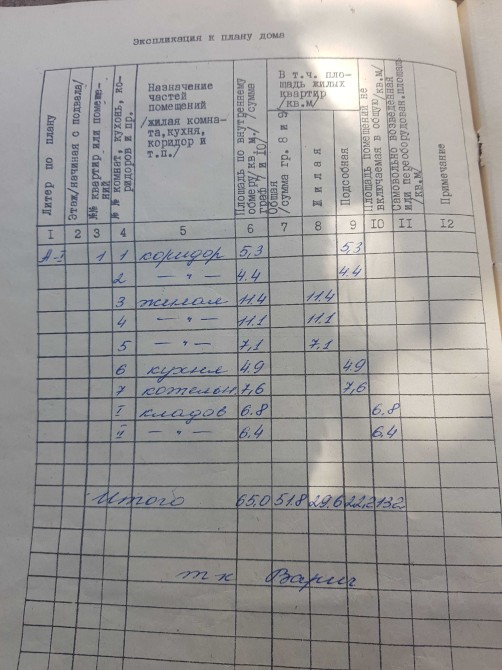 Экспликация к плану дома
Литер по плану
Этаж/начиная с подвала/
№№ квартир или помещений
№№ комнат, кухонь, коридоров и пр.
Назначение
частей
помещений
/жилая комна-
та, кухня,
коридор и
т.п./
Площадь по внутреннему
обмеру/кв.м./ /сумма
граф 7 и 10/
В т.ч. пло-
щадь жилых
квартир
/кв.м/
Общая
/сумма гр. 8 и 9
Жилая
Подсобная
Площадь помещений не
включаемая в общую/кв.м/
Самовольно возведенная
или переоборудован.площадь
/кв.м/
Примечание
I 2 3 4 5 6 7 8 9 10 11 12
А-I 1 1 коридор 5,3 5,3
2 — " — 4.4 4.4
3 жилая 11.4 11.4
4 — " — 11.1 11.1
5 — " — 7,1 7,1
6 кухня 4.9 4.9
7 котельн. 7,6 7,6
I кладов 6.8 6,8
II — " — 6,4 6.4
Итого 65,0 51.8 29,6 22,2 13,2